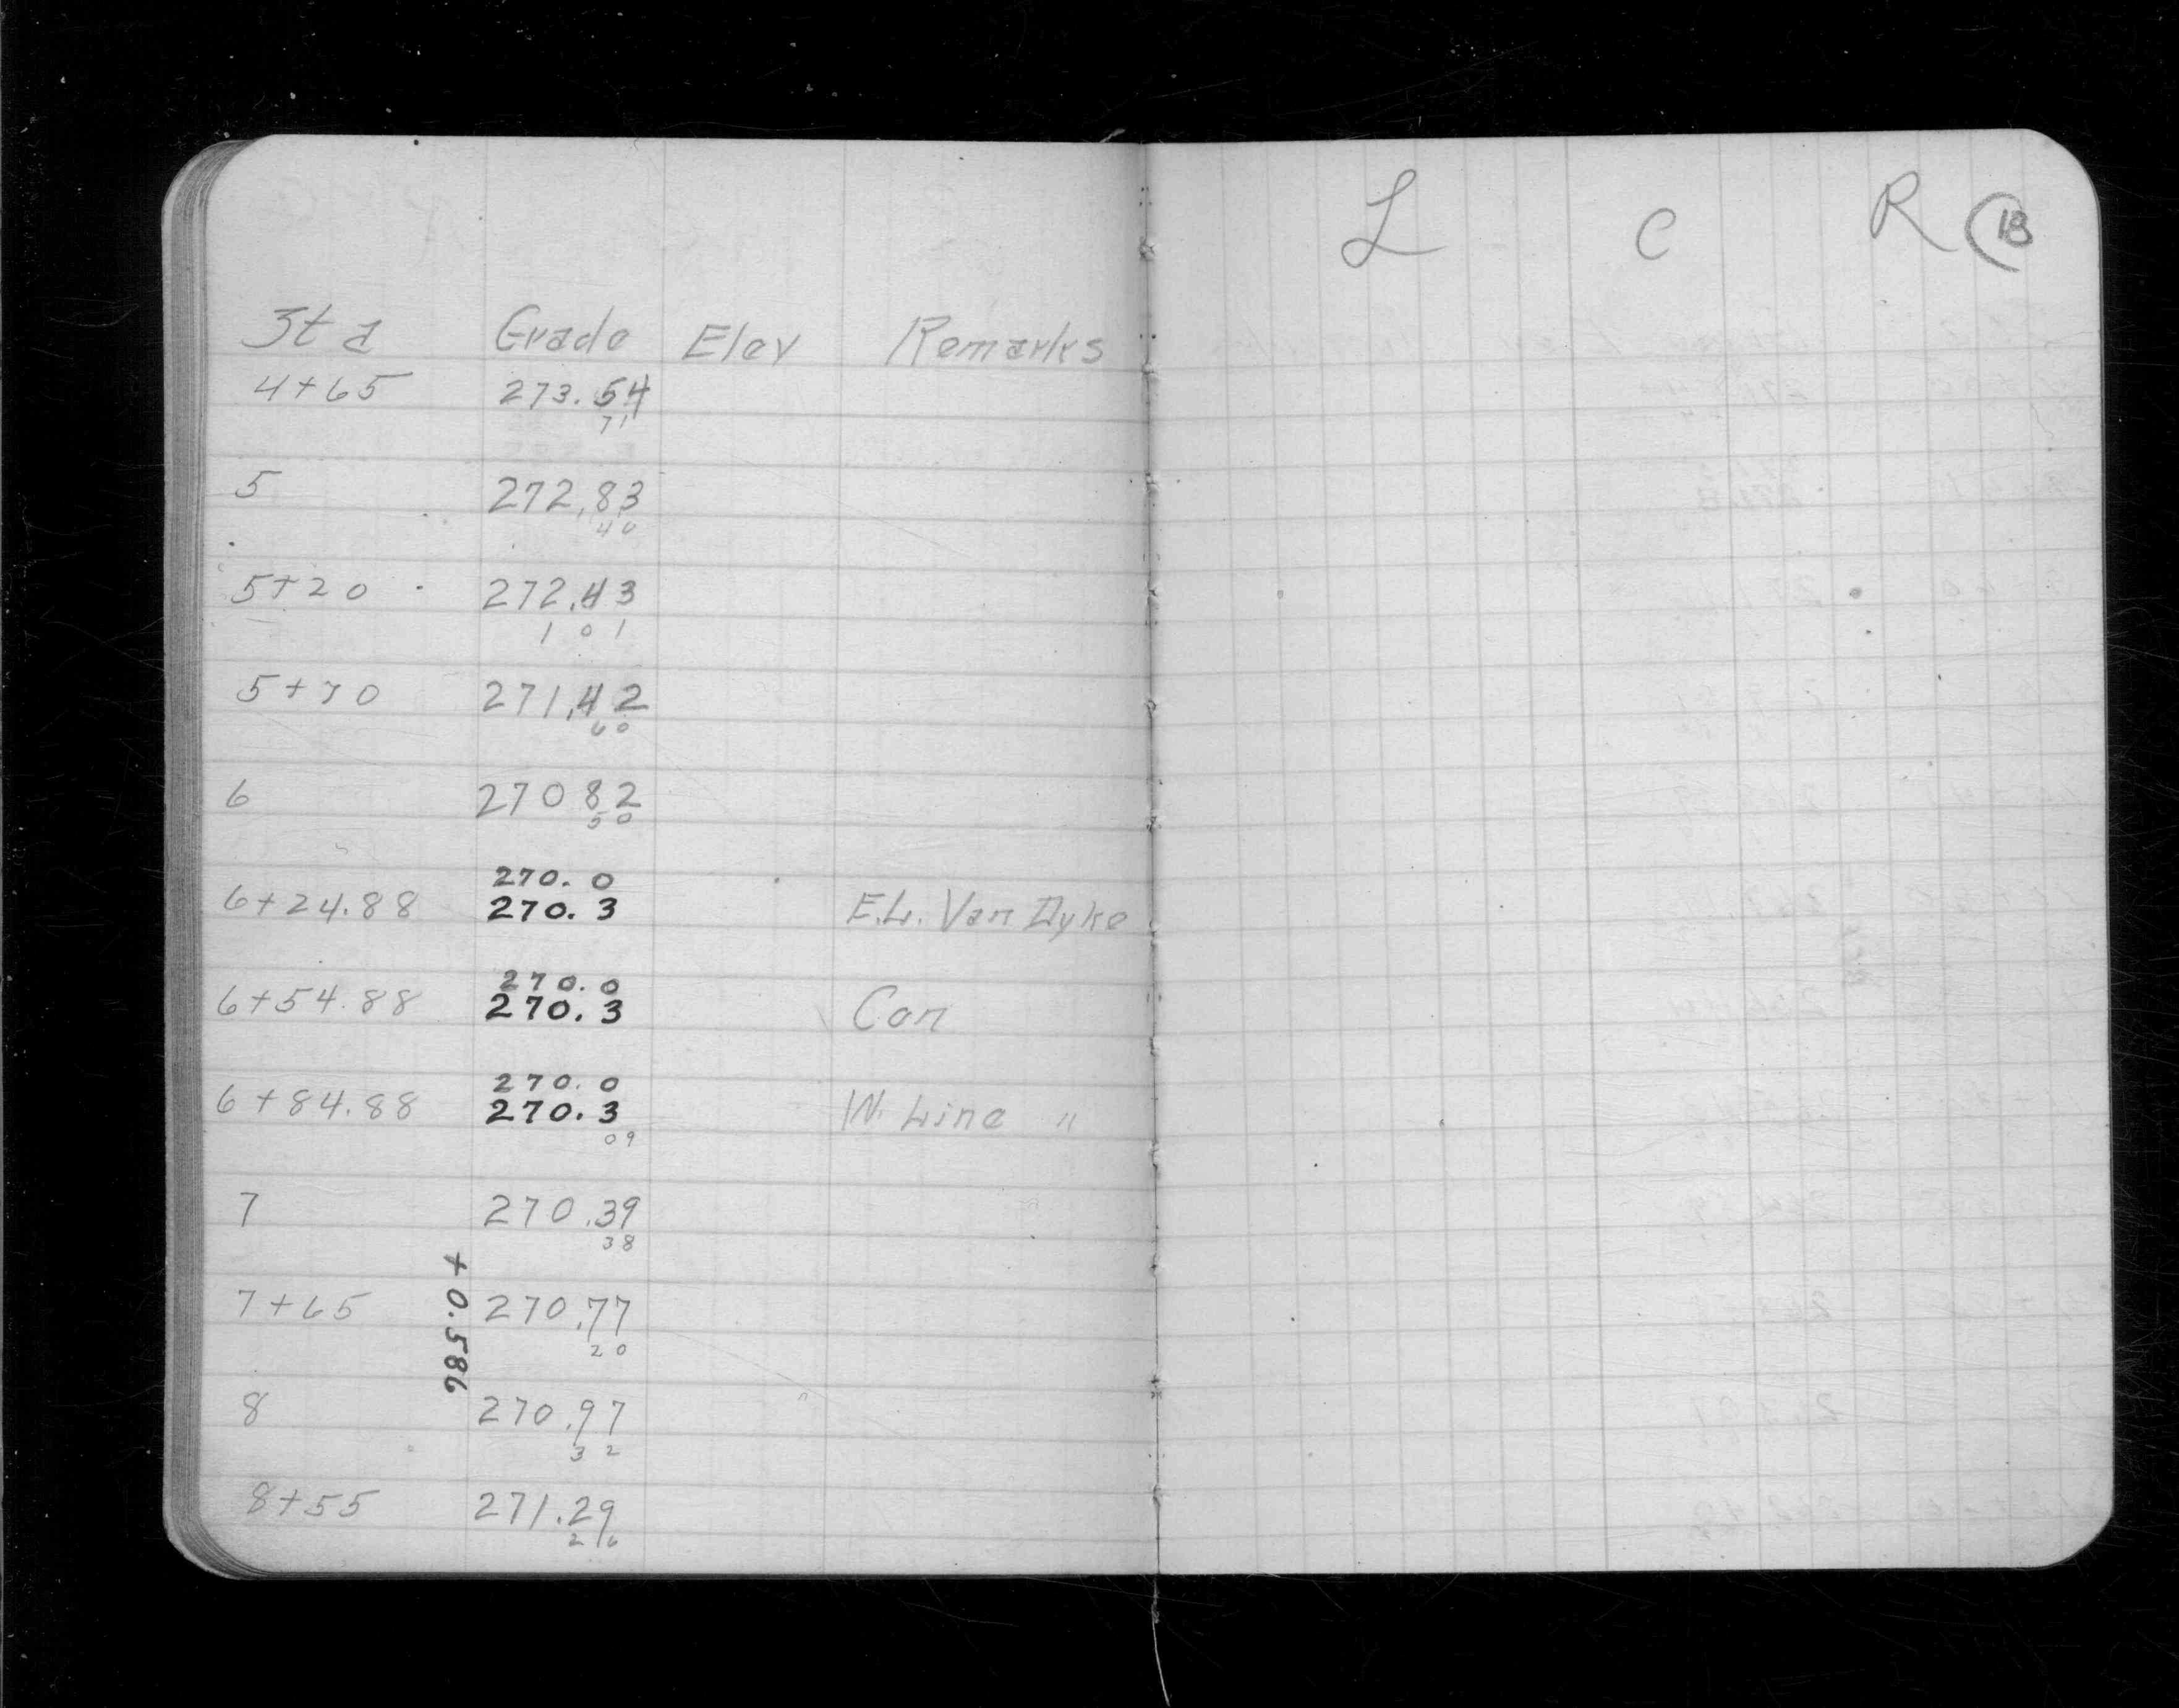 L C R 18
Sta Grade Elev Remarks
4+65 273.54
71
5 272.83
40
5+20 272.43
1 01
5+70 271.42
60
6 270 82
50
270.0
6+24.88 270.3 E.L. Van Dyke
270.0
6+54.88 270.3 Con
270.0
6+84.88 270.3 W. Line "
09
7 270.39
38
+0.586
7+65 270.77
20
8 270.97
32
8+55 271.29
26